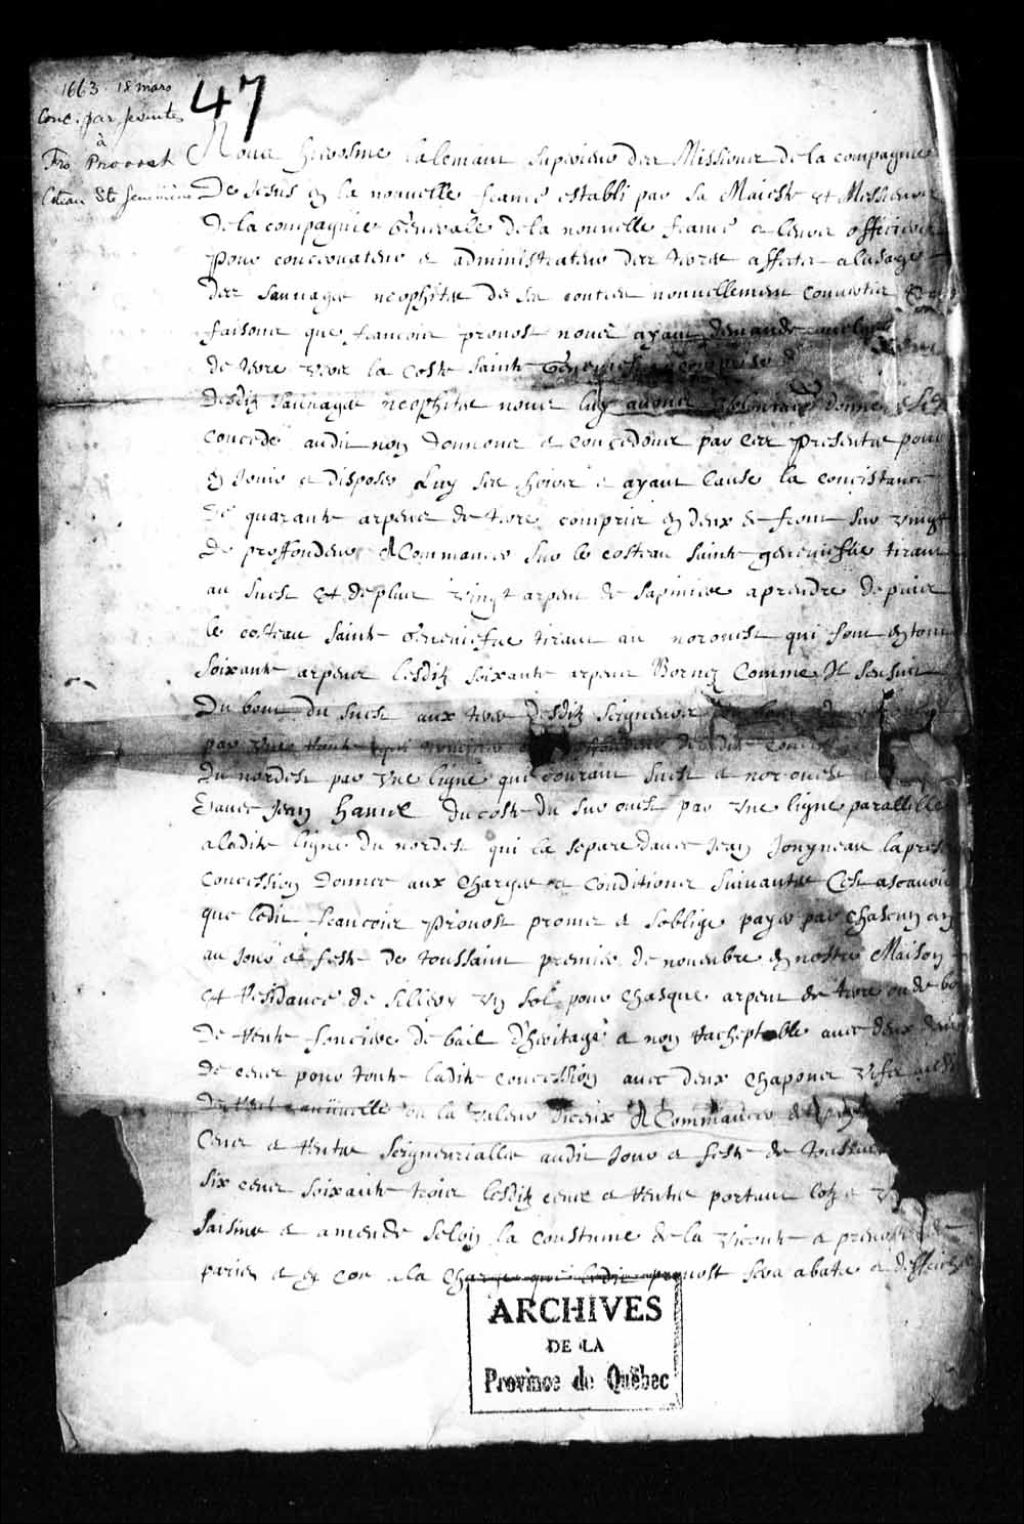 1663 18 mars
Conc. par Jesuites
à
Fro Provost
Coteau Ste Genevieve
47
Nous Hierosme Lalemant superieur des Missions de la compagnie
De Jesus en la nouvelle france establi par sa Maieste et Messieurs
De la compagnie Generale de la nouvelle france a leurs officiers
pour concervateur et administrateur des terres affectez a lusage
des sauvages neophites de ses contrees nouvellement convertis
faisons que francois provost nous ayant demande
de terre vers la coste sainte Genevieve
Desditz sauvages neophites nous luy avons donné
concedé audit nom donnons et concedons par ces presentes pour
en Jouir et disposer Luy ses hoirs et ayant cause la concistance
De quarante arpens de terre compris en deux de front sur vingt
de proffondeur A Commancer sur le costeau sainte geneviefve tirant
au suest et de plus vingt arpens de sapiniere aprendre depuis
le costeau sainte Geneviefve tirant au norouest qui sont en tout
soixante arpens lesditz soixante arpens Bornez Comme Il sensuit
Du bout du suest aux terres desditz seigneurs
par une
Du nordest par une ligne qui courant suest et norouest
Davec Jean Hamel Du coste du surouest par une ligne parallelle
a ladite ligne du nordest qui la separe davec Jean Jongneau
concession donnee aux charges et conditions suivantes Cest ascavoir
que ledit francois Provost promet et soblige payer par chascun an
au Jour et feste de toussaint premier de novembre en nostre Maison
et Residance de sillery un sol pour chasque arpent de terre ou de
De rente fonciere de bail d'heritage et non racheptable avec deux
de cens pour toute ladite concession avec deux chapons vifs
De rente annuelle ou la valeur diceux A Commancer
Cens et rentes seigneurialles audit Jour et feste de
six cens soixante trois lesditz cens et rentes portant lotz
saisine et amende selon la coustume de la viconte et prevosté de
paris et en cor a la charge que ledit provost fera abatre et
ARCHIVES
DE LA
Province de Québec